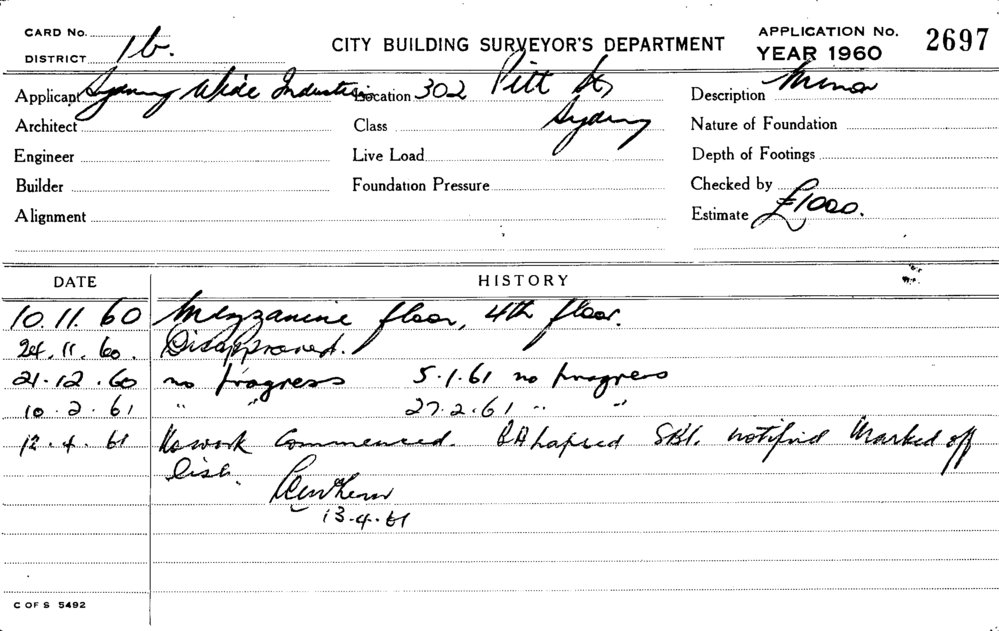 CARD No.
DISTRICT 1b.
CITY BUILDING SURVEYOR'S DEPARTMENT
APPLICATION No.
YEAR 1960
2697
Applicant Sydney Wide Industries
Location 302 Pitt St
Sydney
Description Minor
Architect
Class
Nature of Foundation
Engineer
Live Load
Depth of Footings
Builder
Foundation Pressure
Checked by
Alignment
Estimate £1000.
DATE HISTORY
10.11.60 Mezzanine floor, 4th floor.
24.11.60. Disapproved.
21.12.60 no progress 5.1.61 no progress
10.2.61 " " 27.2.61 " "
12.4.61 No work commenced. BA lapsed SBI. notified Marked off
list.
13.4.61
C OF S 5492